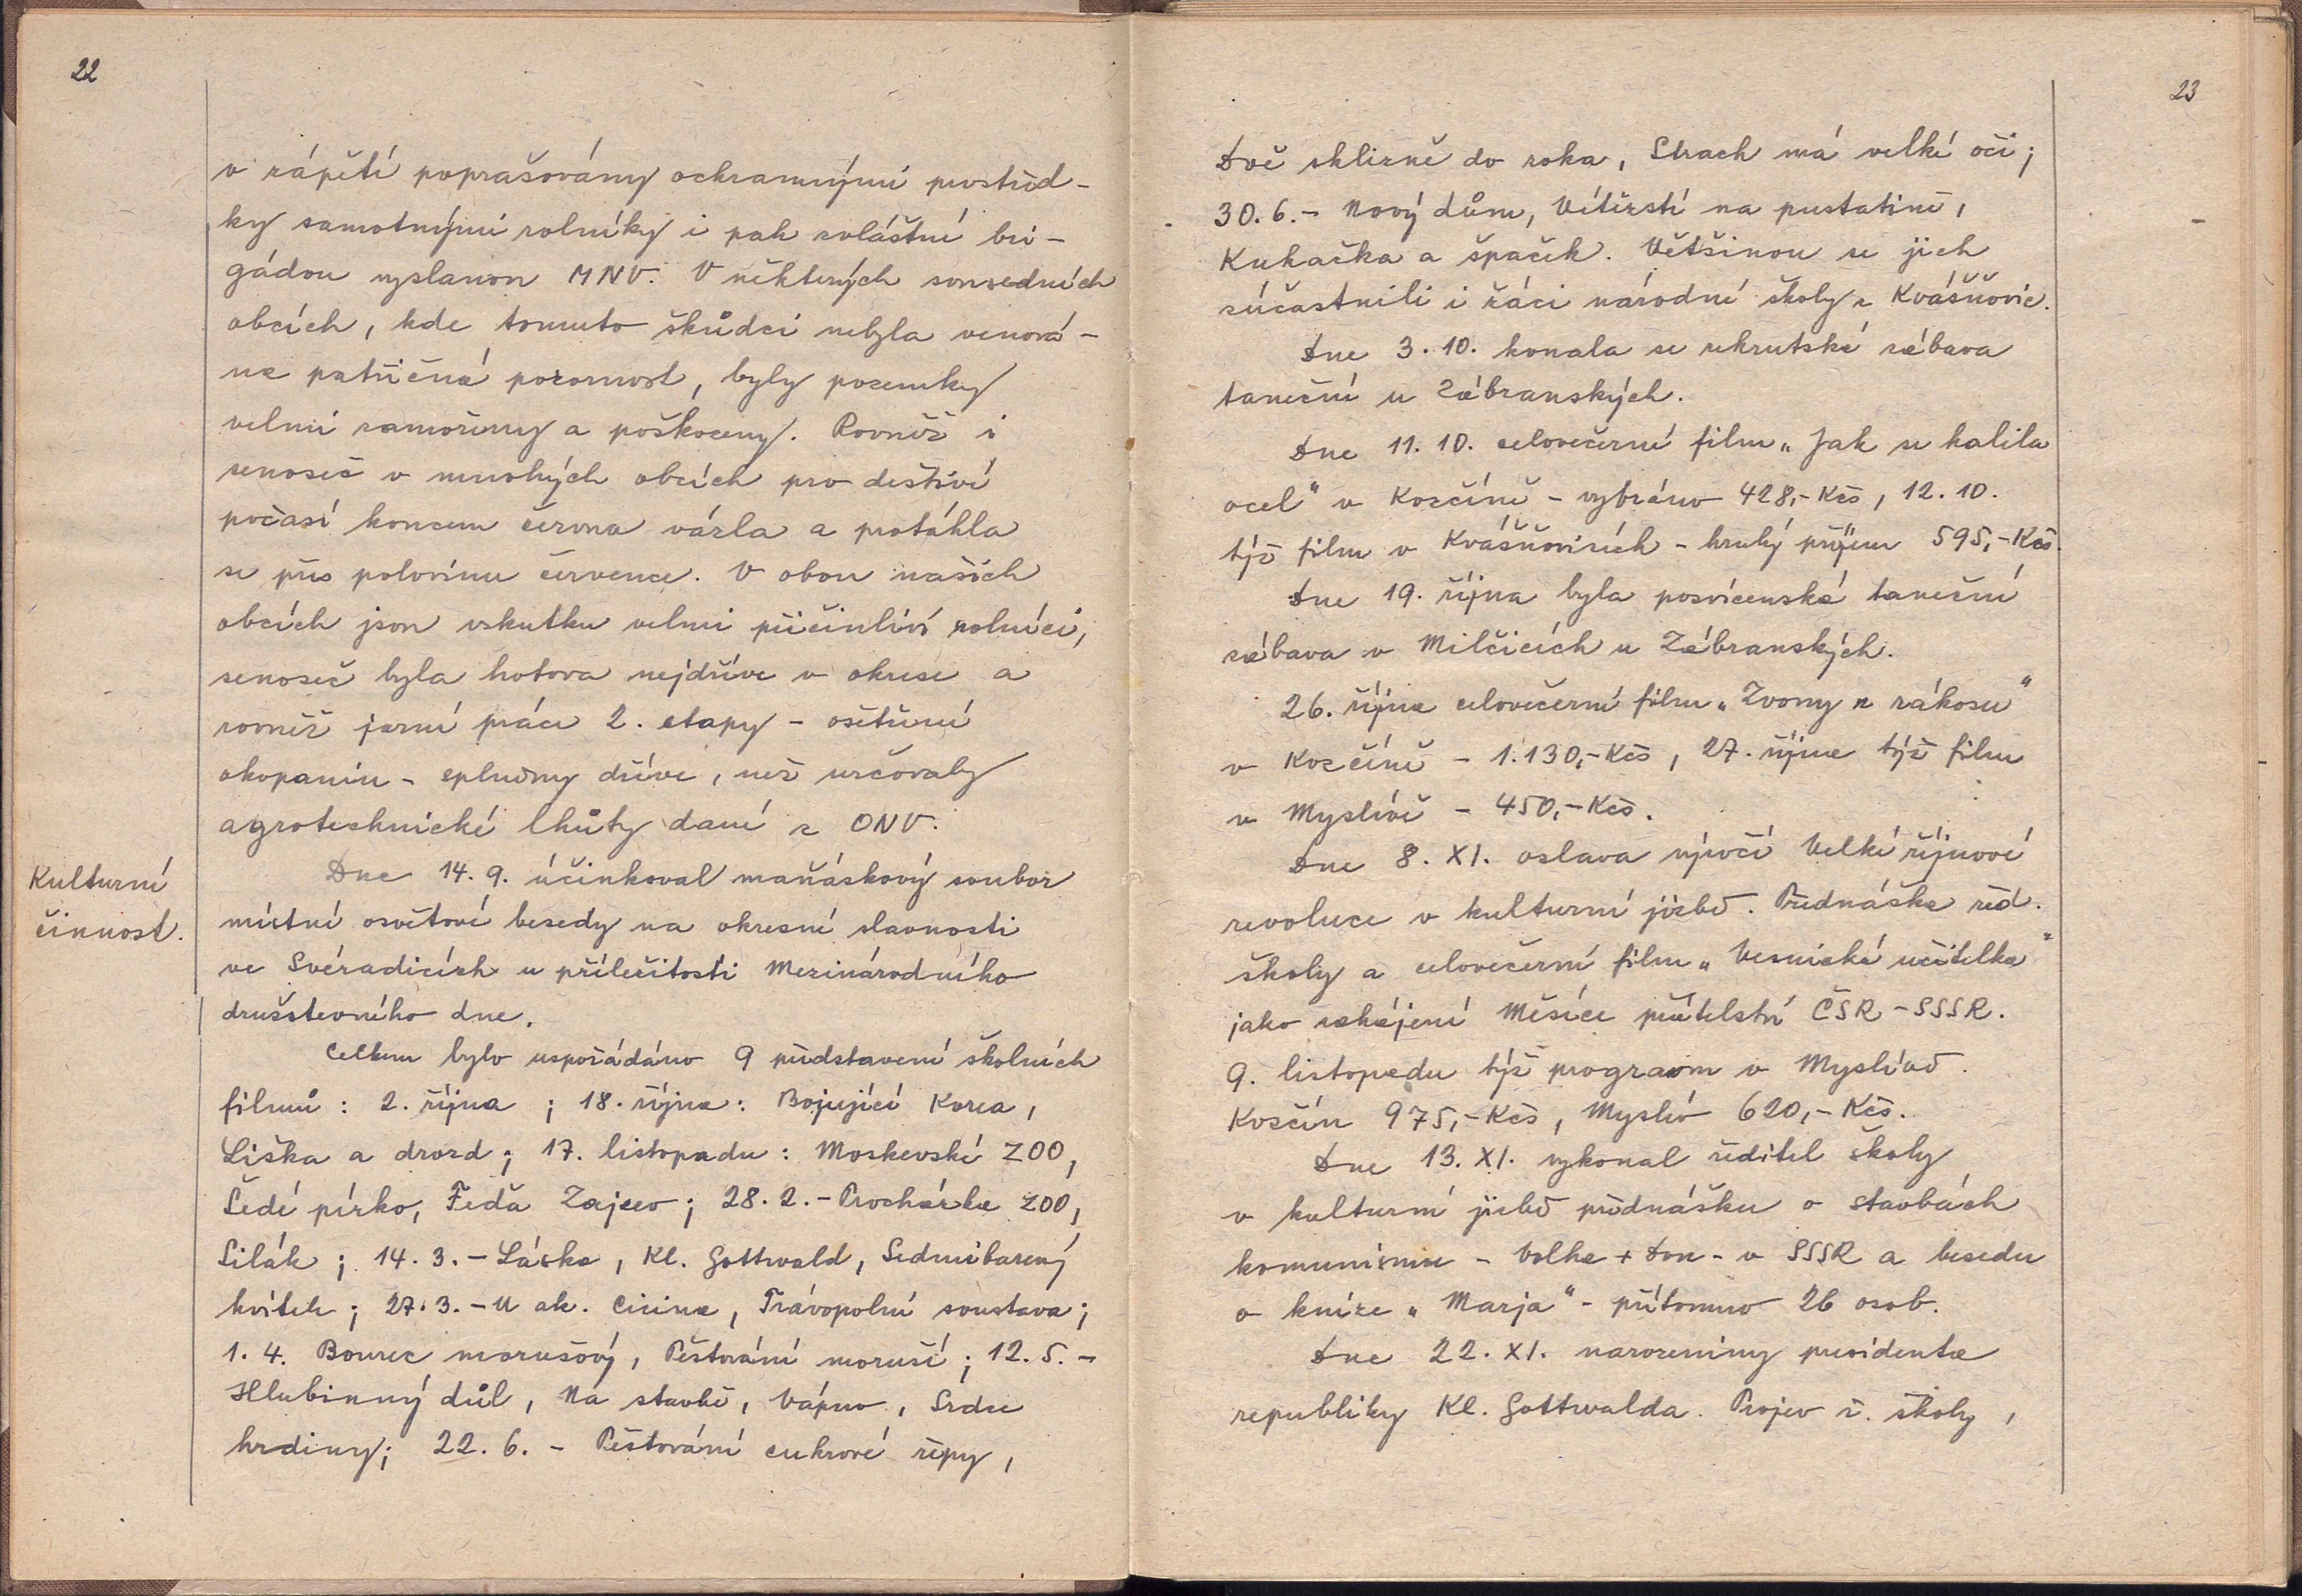 22
v zápětí poprašovány ochrannými prostřed-
ky samotnými rolníky i pak zvláštní bri-
gádou vyslanou MNV. V některých sousedních
obcích, kde tomuto škůdci nebyla venová-
na patřičná pozornost, byly pozemky
velmi zamořeny a poškozeny. Rovněž i
senoseč v mnohých obcích pro deštivé
počasí koncem června vázla a protáhla
se přes polovinu července. V obou našich
obcích jsou vskutku velmi přičinliví rolníci,
senoseč byla hotova nejdříve v okrese a
rovněž jarní práce 2. etapy - ošetření
okopanin - splněny dříve, než určovaly
agrotechnické lhůty dané z ONV.
Kulturní
činnost.
Dne 14. 9. účinkoval maňáskový soubor
místní osvětové besedy na okresní slavnosti
ve Svéradicích u příležitosti Mezinárodního
družstevního dne.
Celkem bylo uspořádáno 9 představení školních
filmů: 2. října ; 18. října: Bojující Korea,
Liška a drozd; 17. listopadu: Moskevské ZOO,
Šedé pírko, Feďa Zajcev; 28. 2. - Procházka ZOO,
Silák; 14. 3. - Láska, Kl. Gottwald, Sedmibarevný
kvítek; 27. 3. - U ak. Cicina, Trávopolní soustava;
1. 4. Bourec morušový, Pěstování moruší; 12. 5. -
Hlubinný důl, Na stavbě, Vápno, Srdce
hrdiny; 22. 6. - Pěstování cukrové řepy,
23
Dvě sklizně do roka, Strach má velké oči;
30. 6. - Nový dům, Vítězství na pustatině,
Kukačka a špaček. Většinou se jich
súčastnili i žáci národní školy z Kvášňovic.
Dne 3. 10. konala se rekrutská zábava
taneční u Zábranských.
Dne 11. 10. celovečerní film „Jak se kalila
ocel" v Kozčíně - vybráno 428,- Kčs, 12. 10.
týž film v Kvášňovicích - hrubý příjem 595,- Kčs.
Dne 19. října byla posvícenská taneční
zábava v Milčicích u Zábranských.
26. října celovečerní film „Zvony z rákosu"
v Kozčíně - 1.130,- Kčs, 27. října týž film
v Myslívě - 450,- Kčs.
Dne 8. XI. oslava výročí Velké říjnové
revoluce v kulturní jizbě. Přednáška řed.
školy a celovečerní film „Vesnická učitelka"
jako zahájení Měsíce přátelství ČSR - SSSR.
9. listopadu týž program v Myslívě.
Kozčín 975,- Kčs, Myslív 620,- Kčs.
Dne 13. XI. vykonal ředitel školy
v kulturní jizbě přednášku o stavbách
komunismu - Volha + Don - v SSSR a besedu
o knize „Marja" - přítomno 26 osob.
Dne 22. XI. narozeniny presidenta
republiky Kl. Gottwalda. Projev ř. školy,